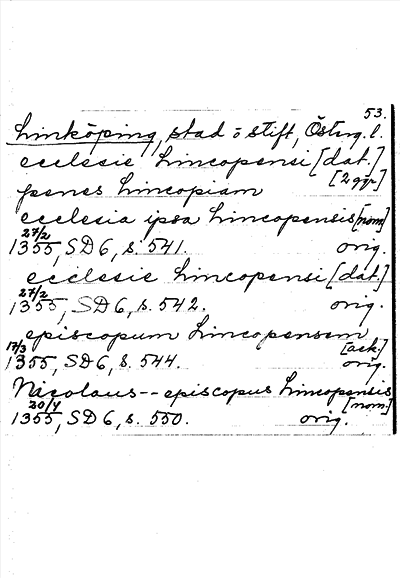 53.
Linköping, stad o stift, Östrg. l.
ecclesie Lincopensi [dat.]
[2 ggr]
penes Lincopiam
ecclesia ipsa Lincopensis [nom]
27/2
1355, SD 6, s. 541. orig.
ecclesie Lincopensi [dat]
27/2
1355, SD 6, s. 542. orig.
episcopum Lincopensem
[ack.]
17/3
1355, SD 6, s. 544. orig.
Nicolaus -- episcopus Lincopensis
[nom]
20/4
1355, SD 6, s. 550. orig.